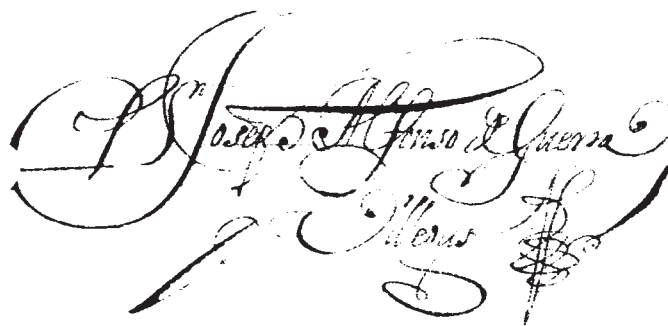 Dn Joseph Alfonso de Guerra
Villegas